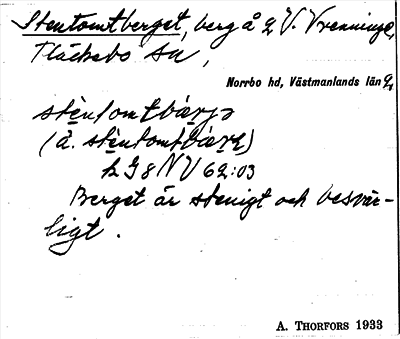 Stentomtberget, berg å 2 V. Vrenninge,
Fläckebo sn,
Norrbo hd, Västmanlands län
stèntomtbærjə
(ä. stèntomtbære)
2 G 8 NV 62:03
Berget är stenigt och besvär-
ligt.
A. THORFORS 1933